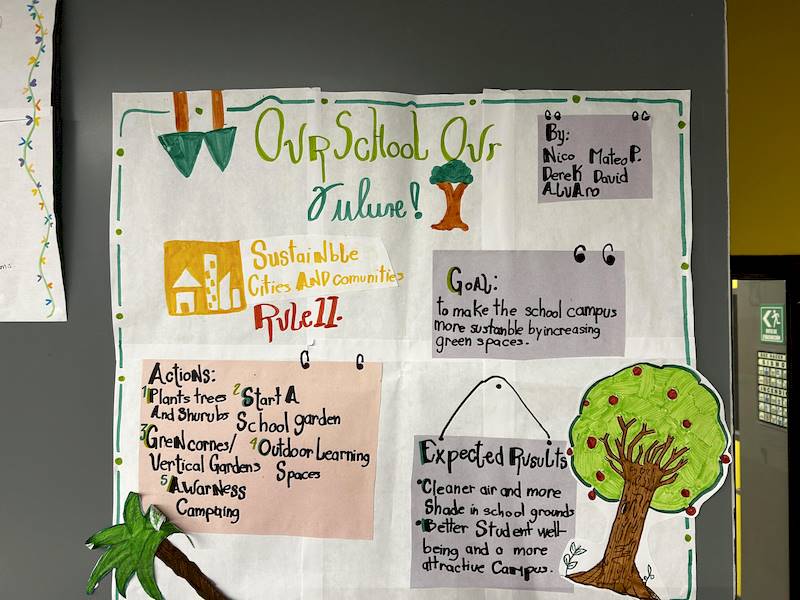 Our School Our
Future!
By:
Nico Mateo P.
Derek David
Alvaro
Sustainble
Cities And comunities
Rule 11.
Goal:
to make the school campus
more sustanble by increasing
green spaces.
Actions:
1 Plants trees
And Shurubs
2 Start A
School garden
3 Grein cornes/
Vertical Gardens
4 Outdoor Learning
Spaces
5 Awarness
Campaing
Expected Rusults
Cleaner air and more
Shade in school grounds
Better Student well-
being and a more
attractive Campus.